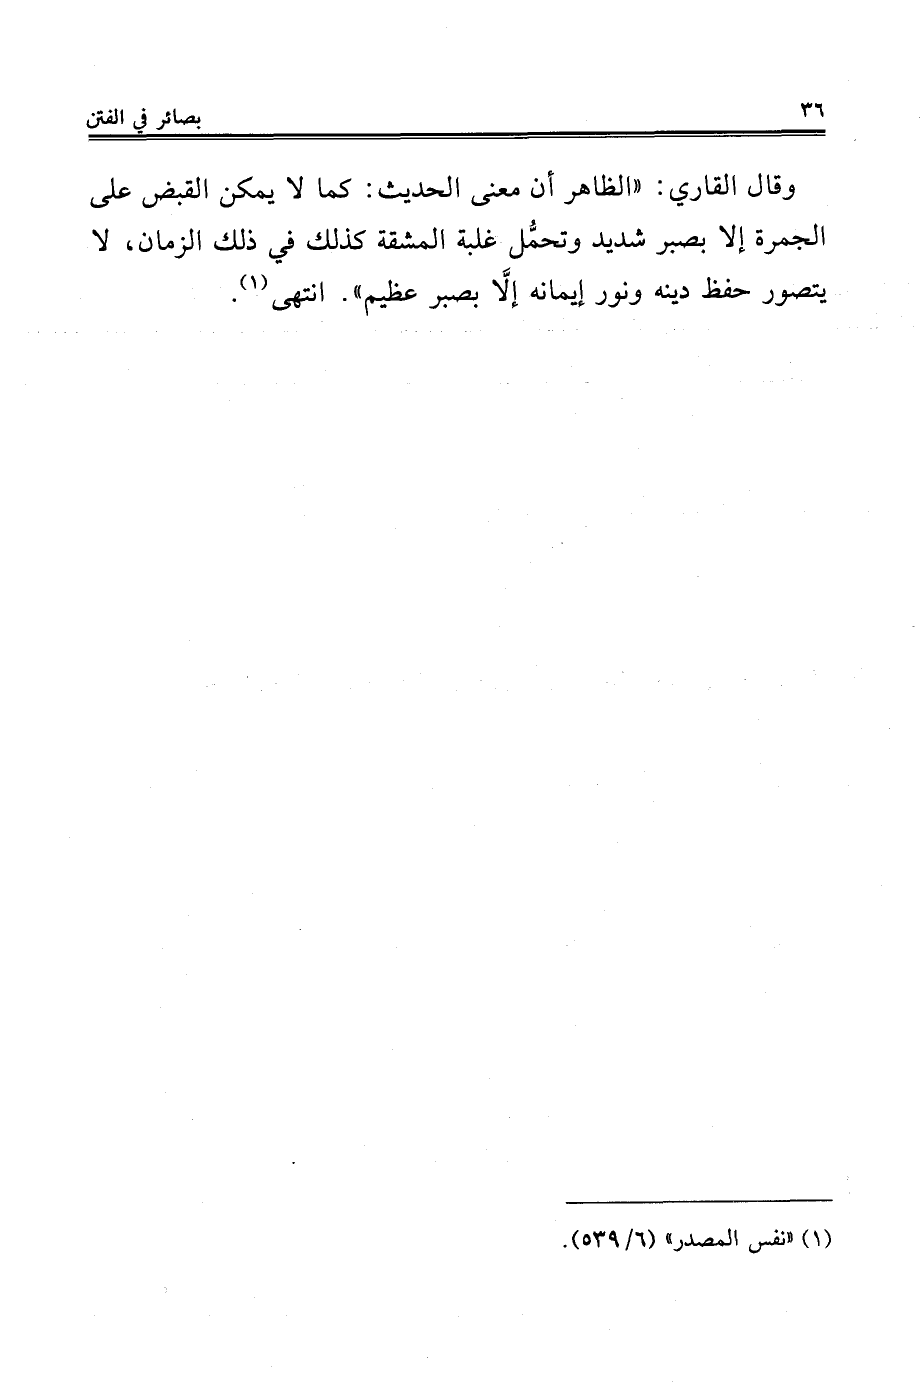 ٣٦
بصائر في الفتن
وقال القاري: «الظاهر أن معنى الحديث: كما لا يمكن القبض على
الجمرة إلا بصبر شديد وتحمُّل غلبة المشقة كذلك في ذلك الزمان، لا
يتصور حفظ دينه ونور إيمانه إلَّا بصبر عظيم». انتهى(١).
(١) «نفس المصدر» (٦/ ٥٣٩).